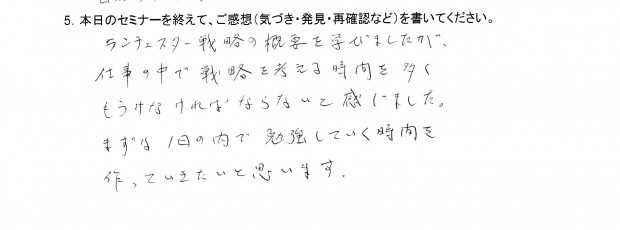 5. 本日のセミナーを終えて、ご感想（気づき・発見・再確認など）を書いてください。
ランチェスター戦略の概要を学びましたが、
仕事の中で戦略を考える時間を多く
もうけなければならないと感じました。
まずは1日の内で勉強していく時間を
作っていきたいと思います。